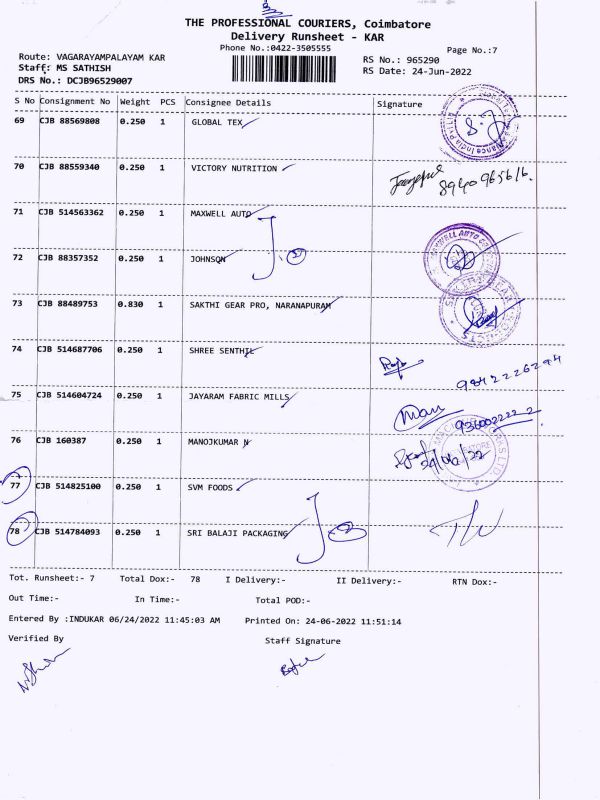 THE PROFESSIONAL COURIERS, Coimbatore
Delivery Runsheet - KAR
Phone No.:0422-3505555
Page No.:7
Route: VAGARAYAMPALAYAM KAR
RS No.: 965290
Staff: MS SATHISH
RS Date: 24-Jun-2022
DRS No.: DCJB96529007
S No Consignment No Weight PCS Consignee Details Signature
69 CJB 88569808 0.250 1 GLOBAL TEX
70 CJB 88559340 0.250 1 VICTORY NUTRITION
8940965616.
71 CJB 514563362 0.250 1 MAXWELL AUTO
72 CJB 88357352 0.250 1 JOHNSON
MAXWELL AUTO
73 CJB 88489753 0.830 1 SAKTHI GEAR PRO, NARANAPURAM
74 CJB 514687706 0.250 1 SHREE SENTHIL
9842226294
75 CJB 514604724 0.250 1 JAYARAM FABRIC MILLS
76 CJB 160387 0.250 1 MANOJKUMAR N
24/06/22
77 CJB 514825100 0.250 1 SVM FOODS
78 CJB 514784093 0.250 1 SRI BALAJI PACKAGING
Tot. Runsheet:- 7 Total Dox:- 78 I Delivery:- II Delivery:- RTN Dox:-
Out Time:- In Time:- Total POD:-
Entered By :INDUKAR 06/24/2022 11:45:03 AM Printed On: 24-06-2022 11:51:14
Verified By Staff Signature